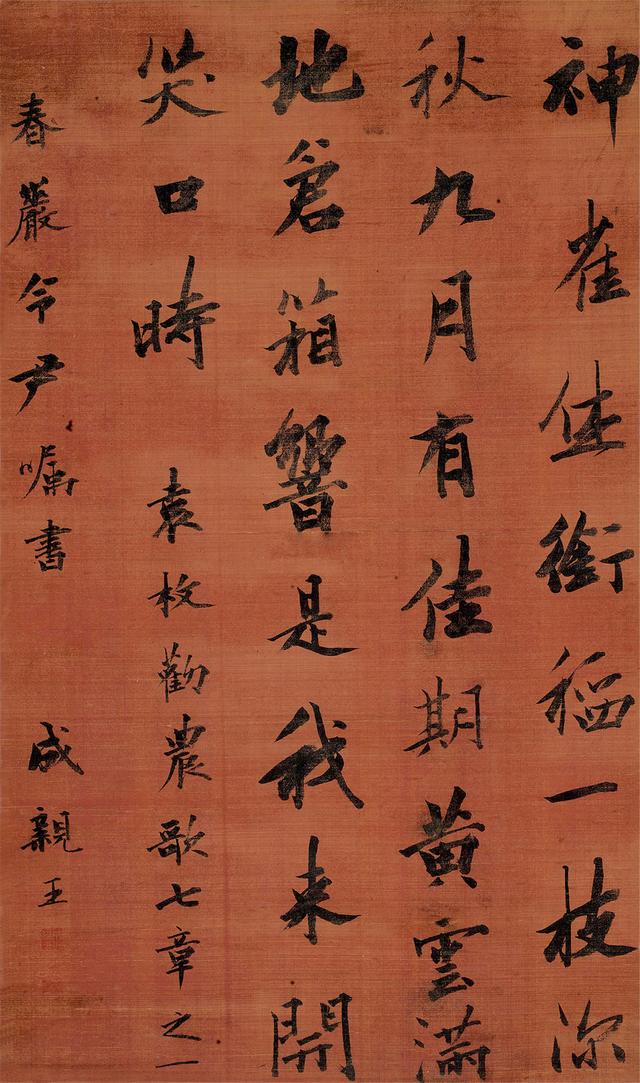 神雀低銜稻一枝深
秋九月有佳期黃雲滿
地倉箱響是我来開
笑口時 袁枚勸農歌七章之一
春巖令尹嘱書 成親王